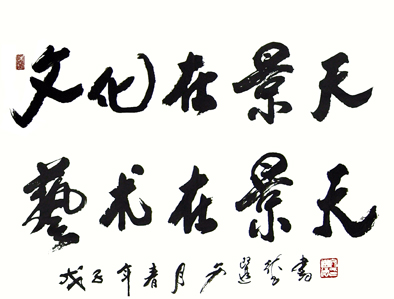 文化在景天
藝术在景天
戊子年春月